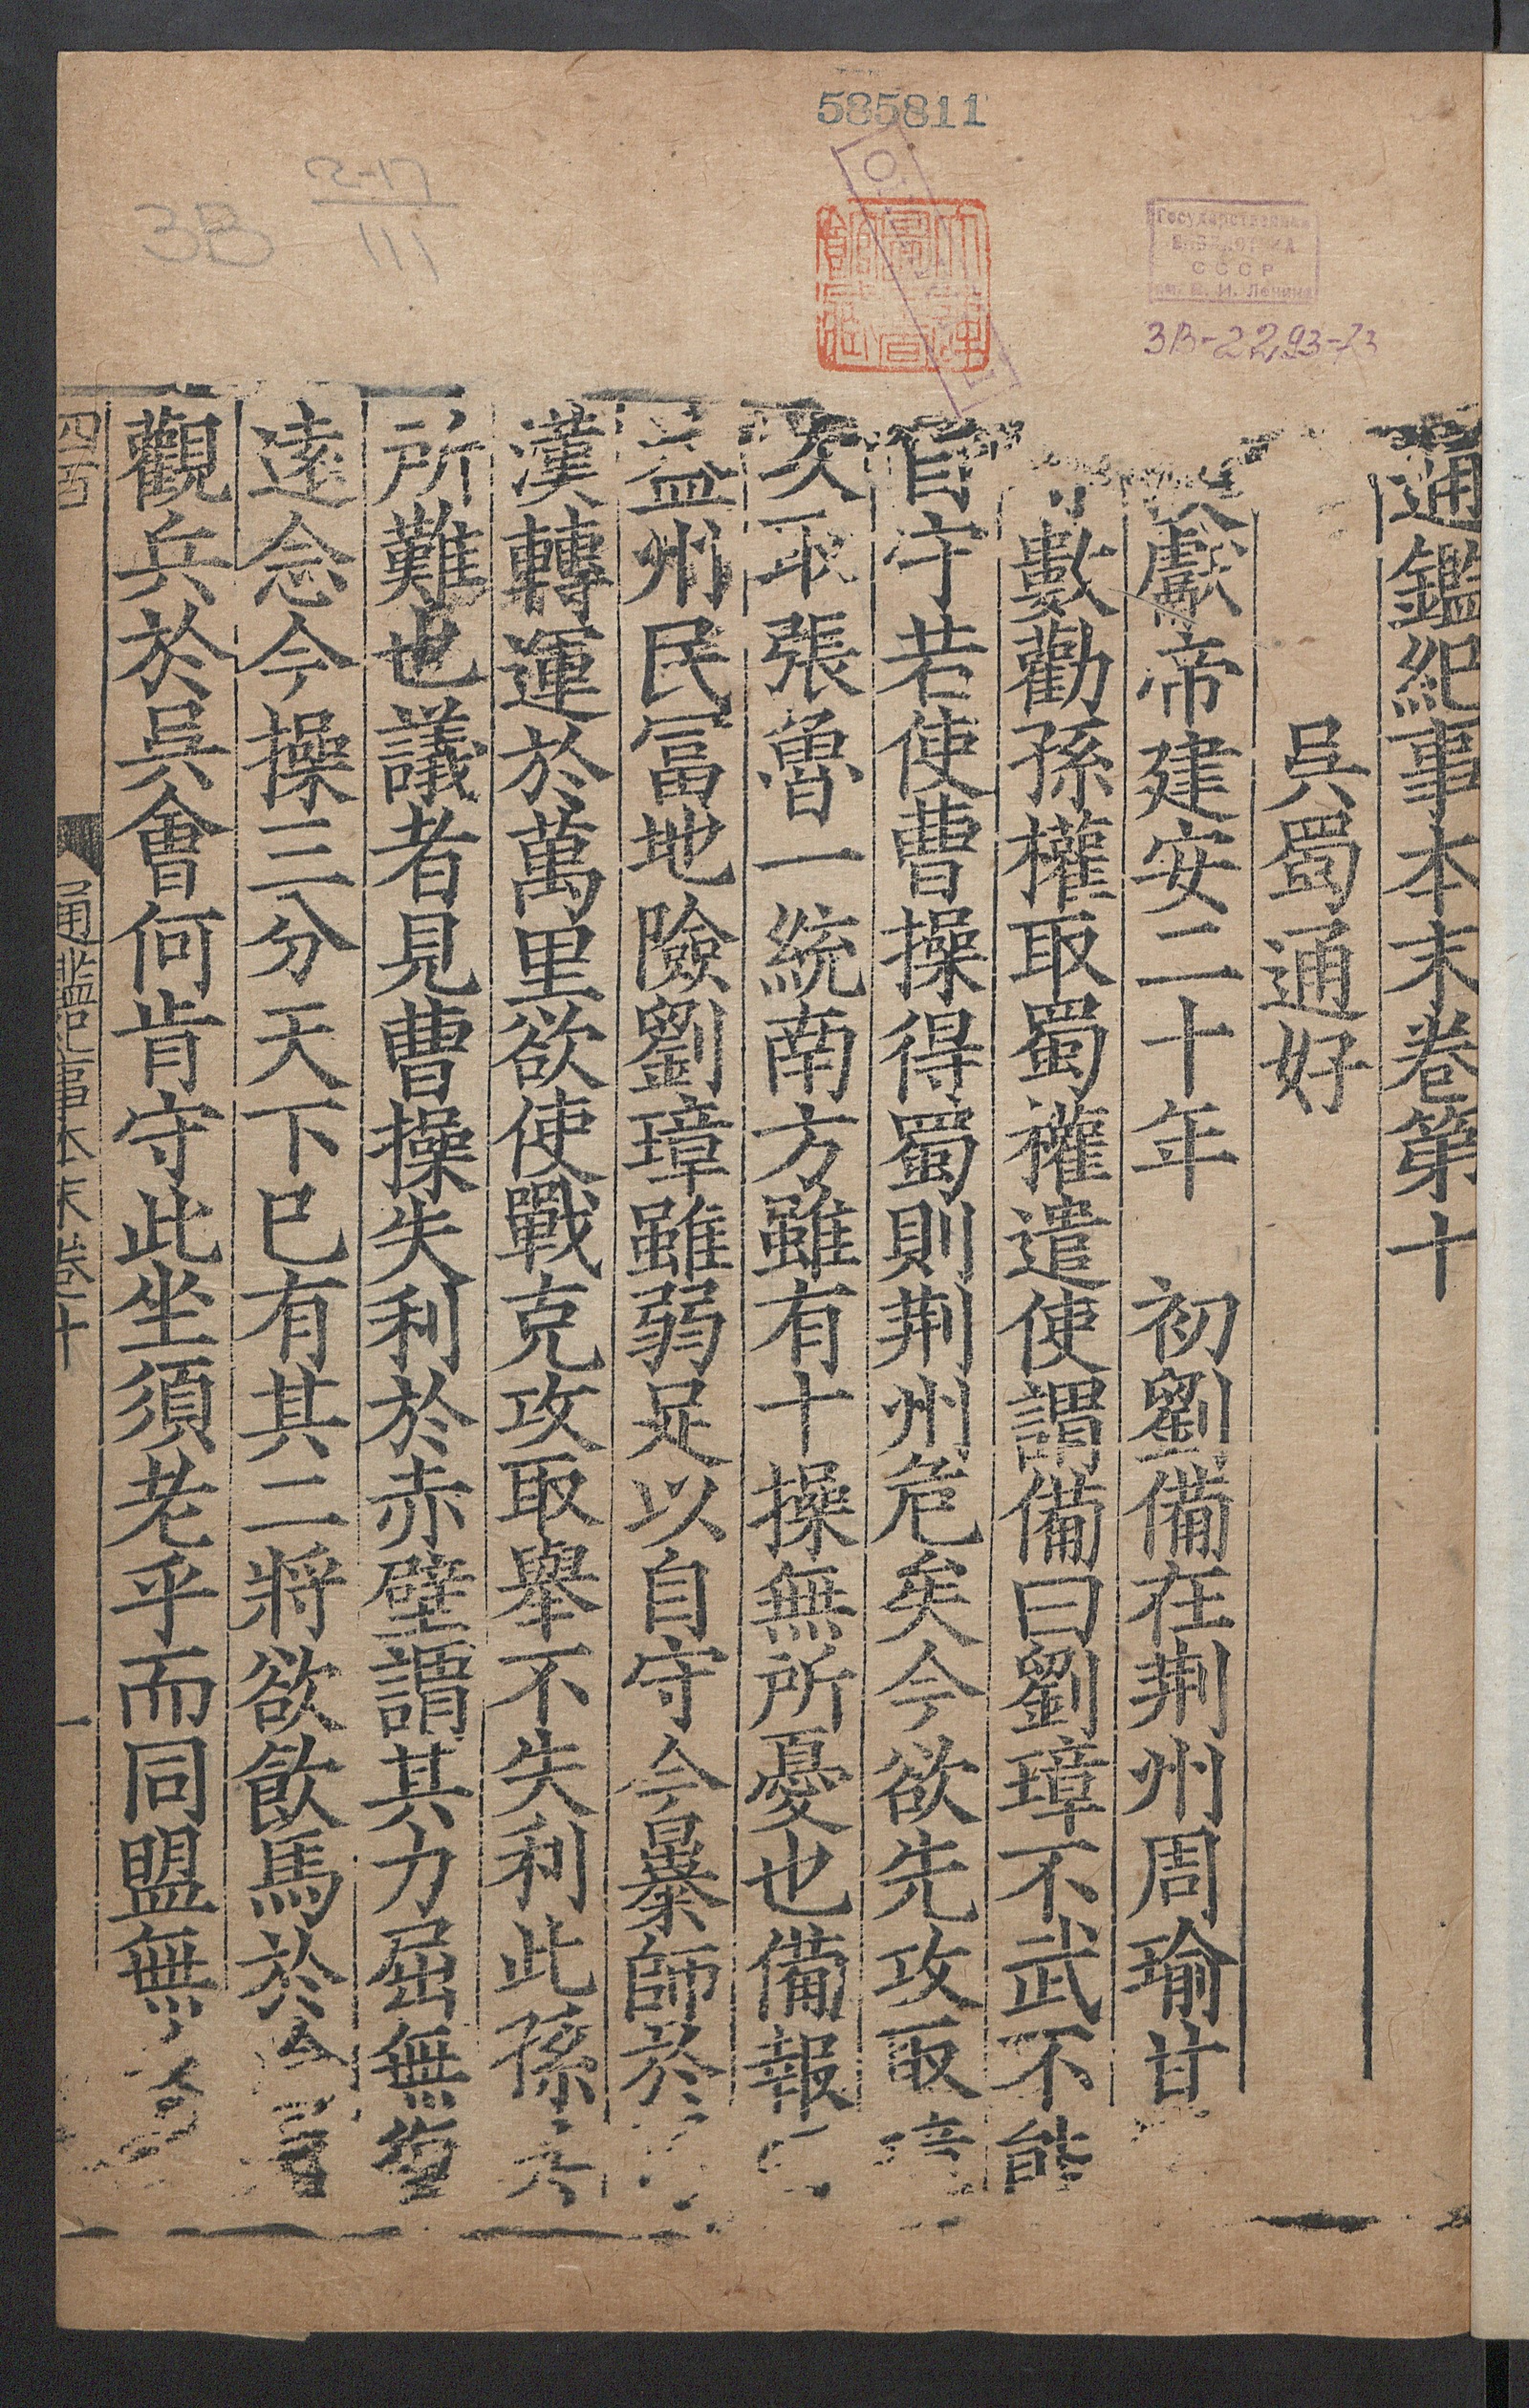 585811
3B
Государственная
БИБЛИОТЕКА
СССР
им. В. И. Ленина
3B-2 2,93-73
通鑑紀事本末卷第十
吳蜀通好
獻帝建安二十年 初劉備在荆州周瑜甘
數勸孫權取蜀權遣使謂備曰劉璋不武不能
自守若使曹操得蜀則荆州危矣今欲先攻取璋
次取張魯一統南方雖有十操無所憂也備報曰
益州民冨地險劉璋雖弱足以自守今暴師於
漢轉運於萬里欲使戰克攻取舉不失利此孫
所難也議者見曹操失利於赤壁謂其力屈無復
遠念今操三分天下已有其二將欲飲馬於
觀兵於吳會何肯守此坐須老乎而同盟無
四百
通鑑紀事本末卷十
一